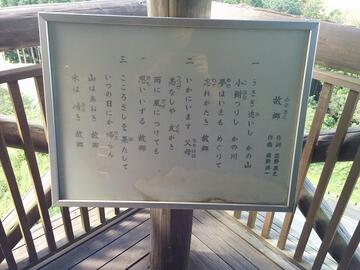 故郷
ふるさと
作詞 高野辰之
作曲 岡野貞一
一 うさぎ追いし かの山
小鮒つりし かの川
夢はいまも めぐりて
忘れがたき 故郷
二 いかにいます 父母
恙なしや 友がき
雨に風に つけても
思いいずる 故郷
三 こころざしを 果たして
いつの日にか 帰らん
山はあおき 故郷
水は清き 故郷